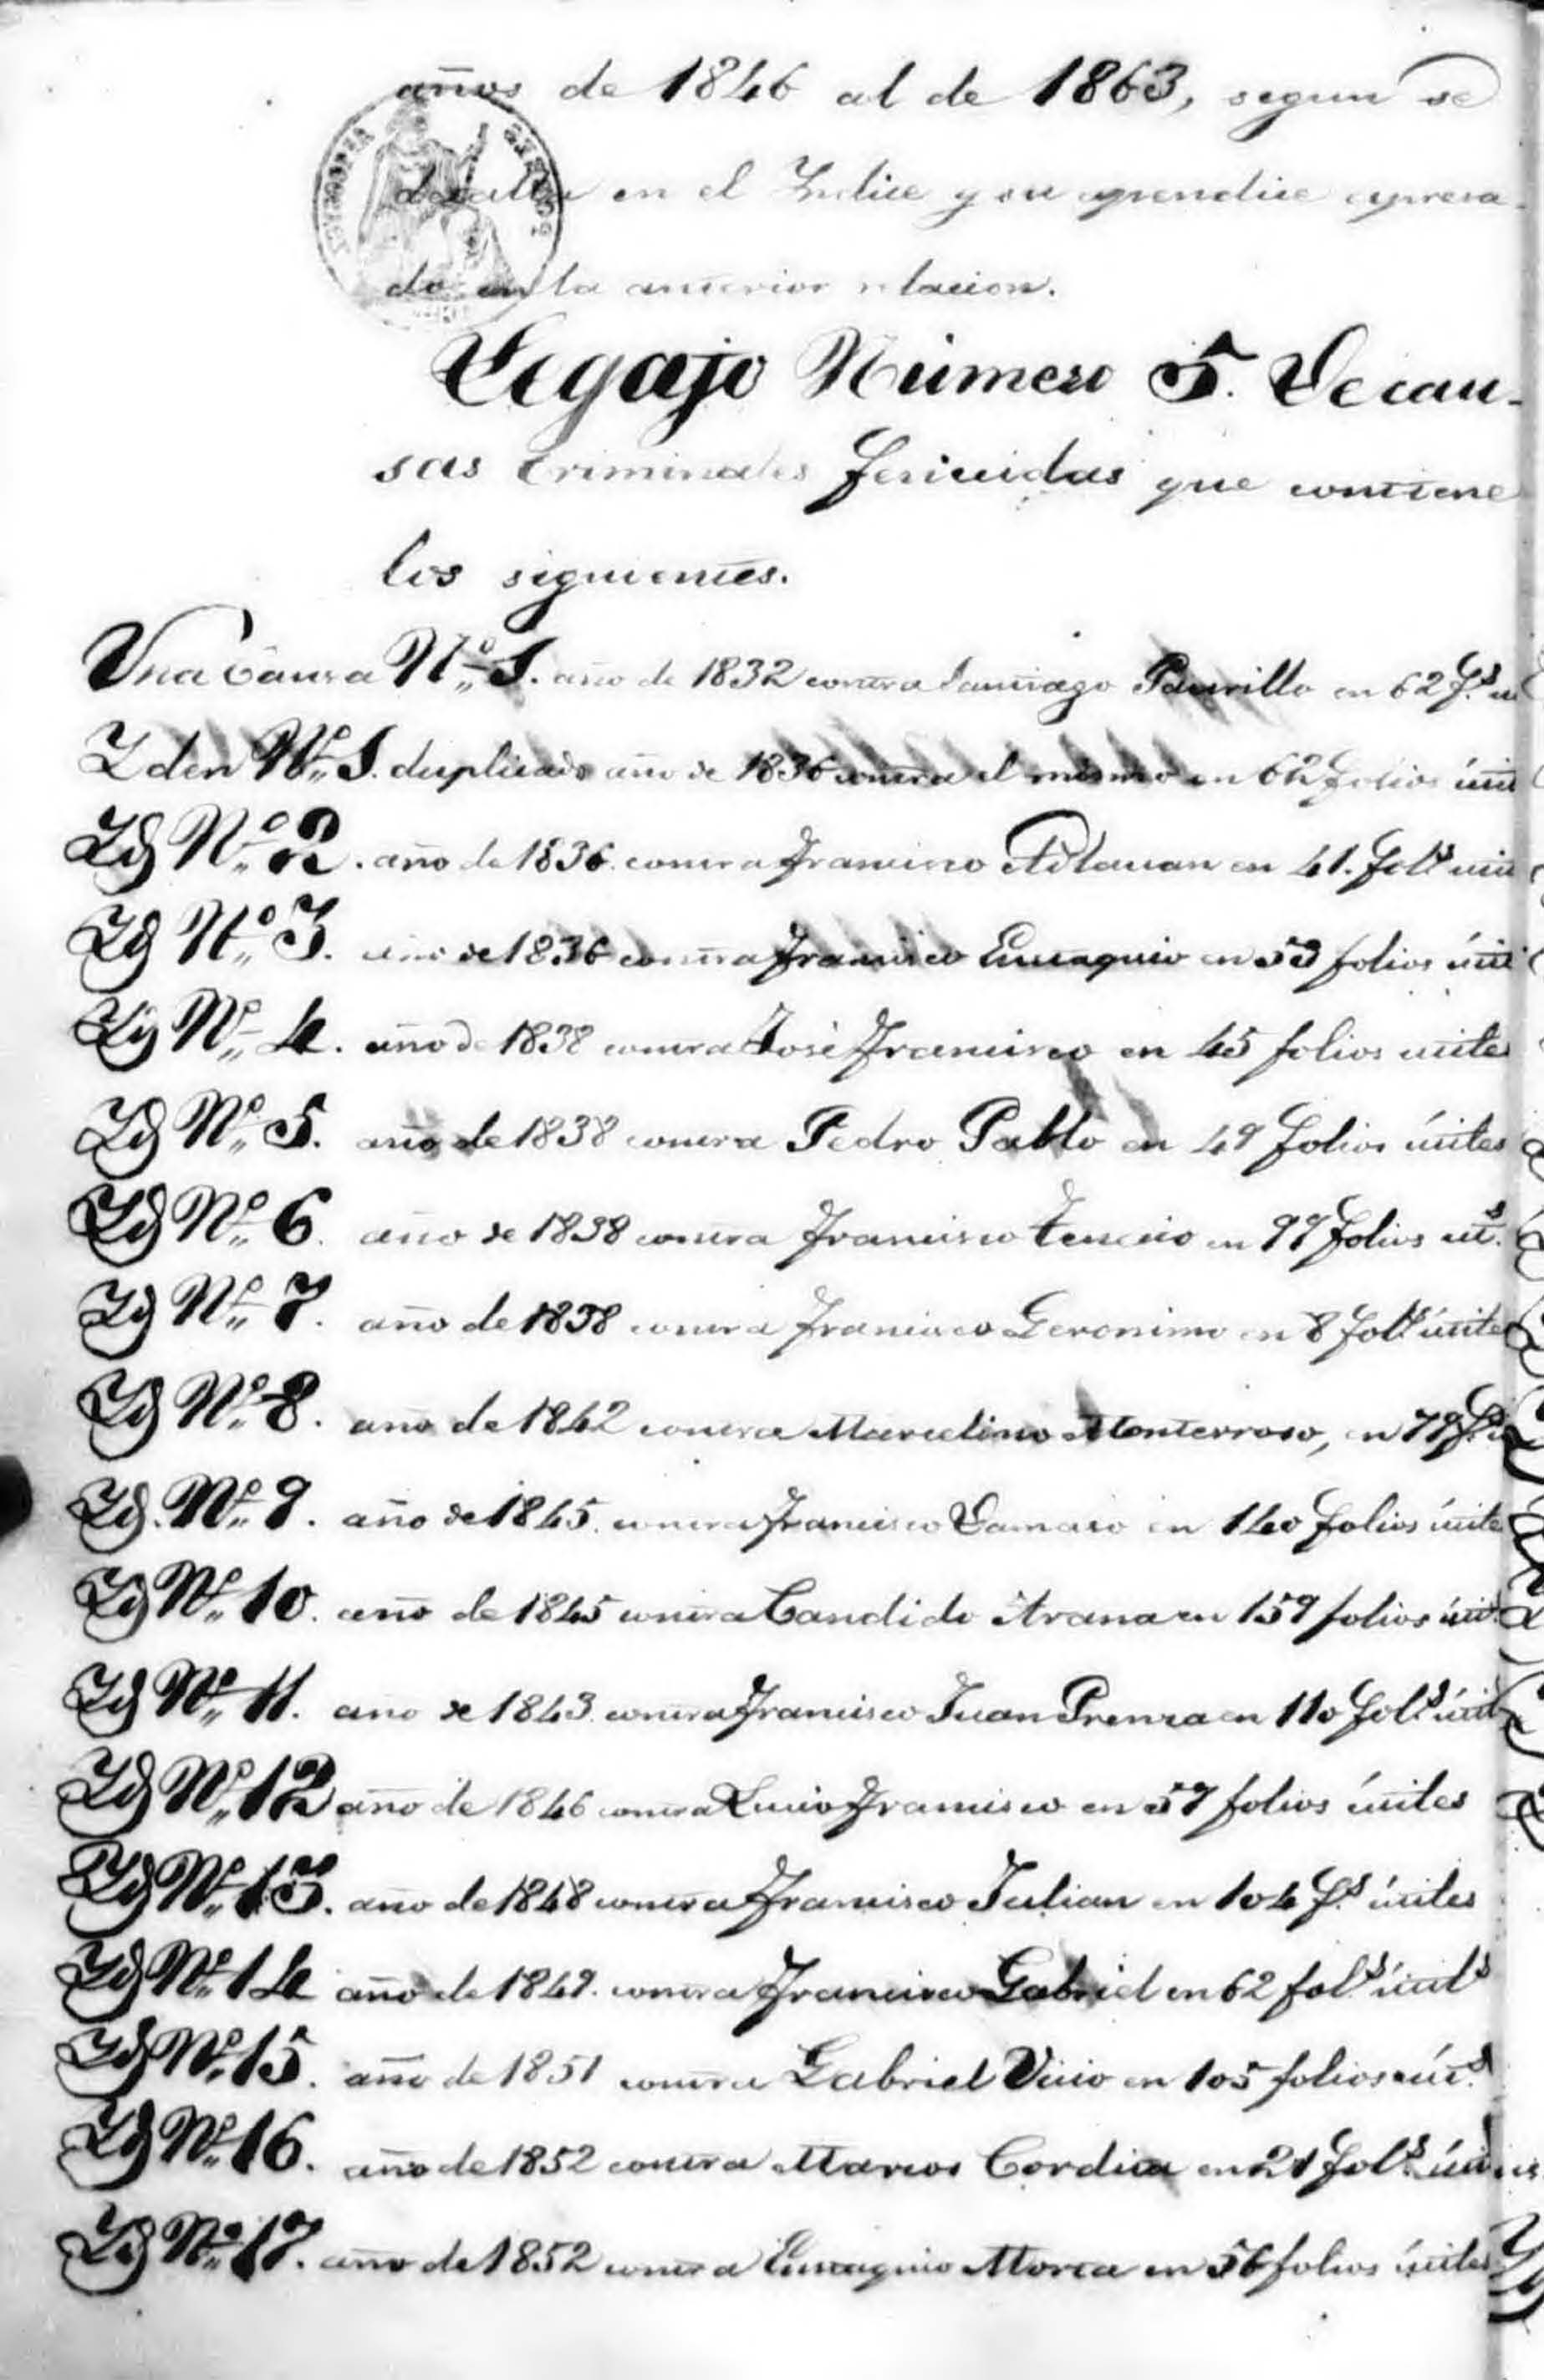 años de 1846 al de 1863, segun se
detalla en el Yndice y su apendice espresa-
do en la anterior relacion.
Legajo Número 5. De cau-
sas Criminales fenicidas que contiene
los siguientes.
Una Causa N.º 1. año de 1832 contra Santiago en 62 f.s
Yden N.º 1. duplicado año de 1836 contra el mismo en 62 folios útil
Yd N.º 2. año de 1836. contra Francisco en 41. fol.s útil
Yd N.º 3. año de 1836 contra Francisco Eustaquio en 53 folios útil
Yd N.º 4. año de 1838 contra José Francisco en 45 folios utiles
Yd N.º 5. año de 1838 contra Pedro Pablo en 49 folios útiles
Yd N.º 6. año de 1838 contra Francisco en 99 folios út.s
Yd N.º 7. año de 1838 contra Francisco Geronimo en 8 fol.s útiles
Yd N.º 8. año de 1842 contra Marcelino Monterroso, en 79 f.s
Yd. N.º 9. año de 1845. contra Francisco Damaso en 140 folios útiles
Yd N.º 10. año de 1845 contra Candido Arana en 159 folios útil
Yd N.º 11. año de 1843. contra Francisco Juan en 110 fol.s útil
Yd N.º 12 año de 1846 contra Lucio Francisco en 57 folios útiles
Yd N.º 13. año de 1848 contra Francisco Julian en 104 f.s útiles
Yd N.º 14 año de 1849. contra Francisco Gabriel en 62 fol.s útil.s
Yd N.º 15. año de 1851 contra Gabriel Vicio en 105 folios út.s
Yd N.º 16. año de 1852 contra Marcos en 21 fol.s útiles
Yd N.º 17. año de 1852 contra Eustaquio en 56 folios útiles